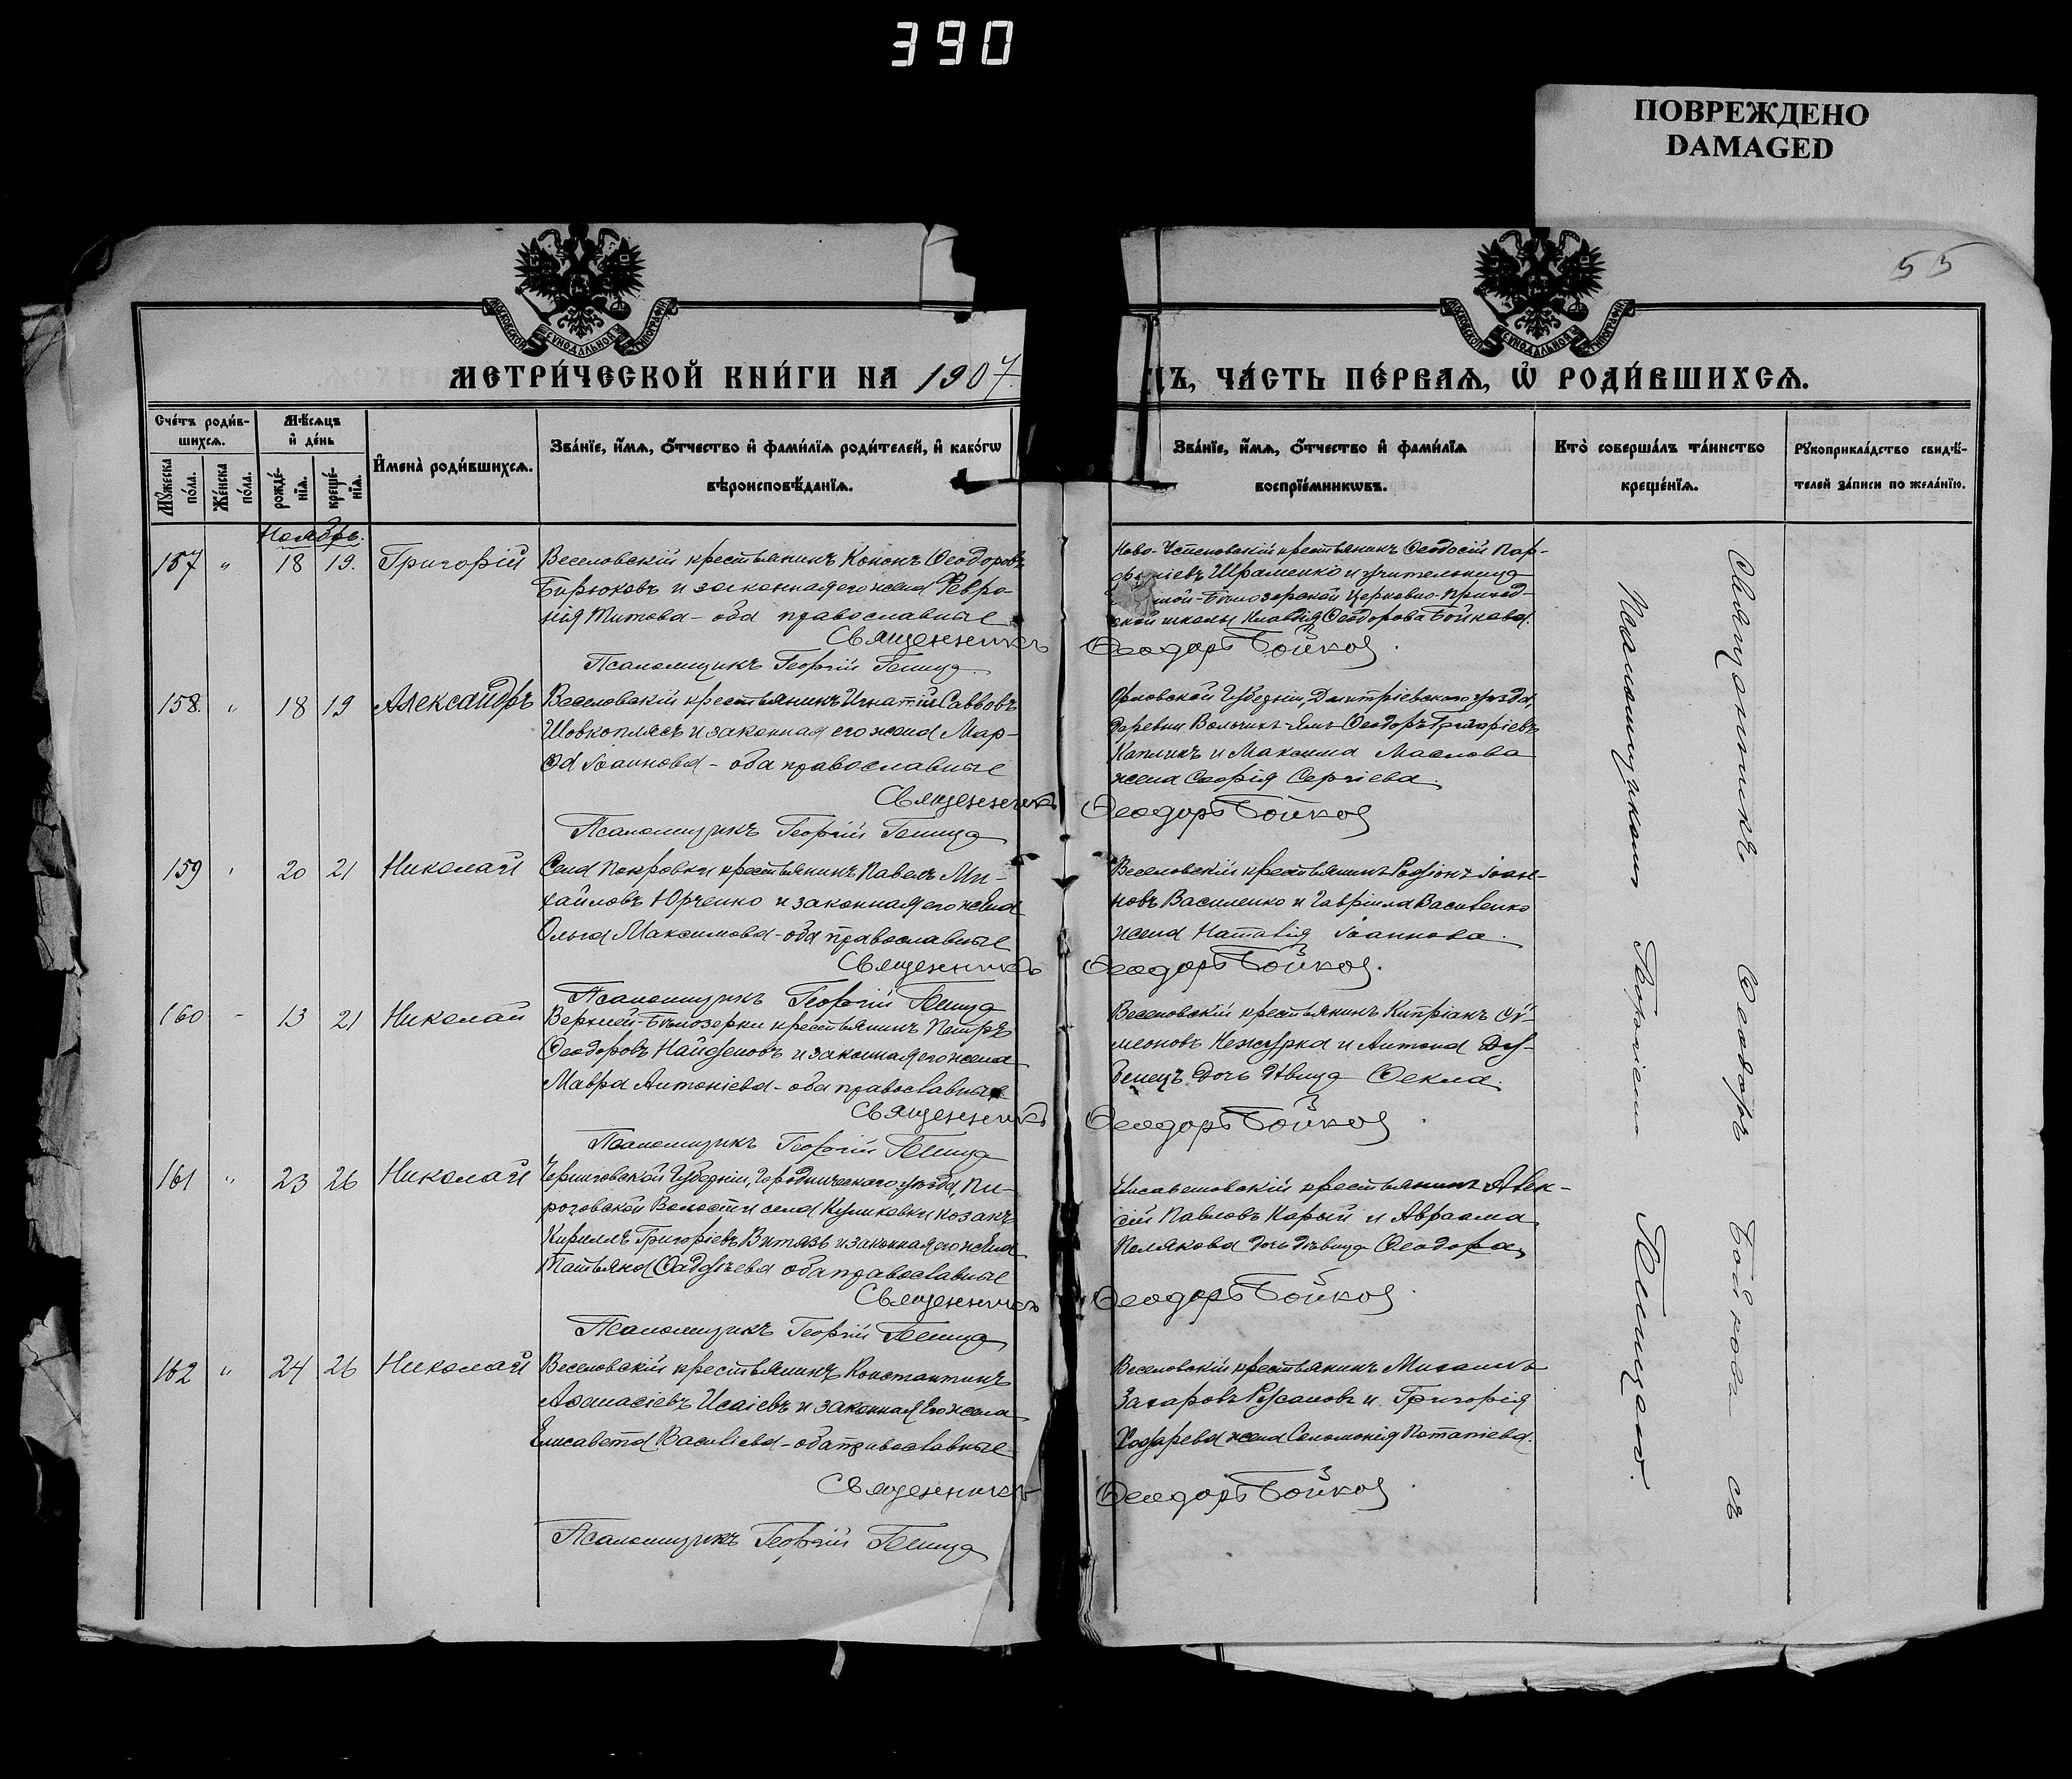 390
ПОВРЕЖДЕНО
DAMAGED
55
МОСКОВСКОЙ СѴНОДАЛЬНОЙ ТИПОГРАФІИ
МОСКОВСКОЙ СѴНОДАЛЬНОЙ ТИПОГРАФІИ
МЕТРИ́ЧЕСКОЙ КНИ́ГИ НА 1907
ДЪ, ЧА́СТЬ ПЕ́РВАѦ, Ѡ҆ РОДИ́ВШИХСѦ.
Сче́тъ роди́в-
шихсѧ.
Мꙋ́жеска по́ла.
Же́нска по́ла.
Мѣ́сѧцъ
и҆ де́нь
рожде́-
нїѧ.
креще́-
нїѧ.
И҆мена̀ роди́вшихсѧ.
Зва́нїе, и҆́мѧ, ѻ҆́тчество и҆ фами́лїѧ роди́телей, и҆ како́гѡ
вѣроисповѣ́данїѧ.
Зва́нїе, и҆́мѧ, ѻ҆́тчество и҆ фами́лїѧ
воспрїе́мникѡвъ.
Кто̀ соверша́лъ та́инство
креще́нїѧ.
Рꙋкоприкла́дство свидѣ́-
телей за́писи по жела́нїю.
Ноябрь.
157 " 18 19. Григорій
Веселовскій крестьянинъ Кононъ Ѳеодоровъ
Бирюковъ и законная его жена Февро-
нія Титова - оба православные
Священникъ Ѳеодоръ Бойков
Псаломщикъ Георгій Гепица
Ново-Успеновскій крестьянинъ Ѳеодосій Пар-
феніевъ Шраменко и учительница
-Бѣлозерской Церковно-приход-
ской школы Клавдія Ѳеодорова Бойкова.
158. " 18 19 Александръ
Веселовскій крестьянинъ Игнатій Саввовъ
Шовкоплясъ и законная его жена Мар-
ѳа Іоаннова - оба православные
Священникъ Ѳеодоръ Бойков
Псаломщикъ Георгій Гепица
Орловской Губерніи, Дмитріевскаго уѣзда,
деревни Ѳеодоръ Григоріевъ
Каплинъ и Максима Маслова
жена Софія Сергіева.
159 " 20 21 Николай
Села Покровки крестьянинъ Павелъ Ми-
хайловъ Юрченко и законная его жена
Ольга Максимова - оба православные
Священникъ Ѳеодоръ Бойков.
Псаломщикъ Георгій Гепица
Веселовскій крестьянинъ Родіонъ Іоан-
новъ Василенко и Гавріила Василенко
жена Наталія Іоаннова.
160 - 13 21 Николай
Верхней-Бѣлозерки крестьянинъ Петръ
Ѳеодоровъ Найденовъ и законная его жена
Мавра Антоніева - оба православные
Священникъ Ѳеодоръ Бойков
Псаломщикъ Георгій Гепица
Веселовскій крестьянинъ Кипріанъ Си-
меоновъ Кежурка и Антона Ду-
бенецъ дочь дѣвица Ѳекла.
161 " 23 26 Николай
Черниговской Губерніи, Городническаго уѣзда, Пи-
роговской Волости села Куликовки козакъ
Кириллъ Григоріевъ Витязь и законная его жена
Татьяна Ѳаддѣева оба православные
Священникъ Ѳеодоръ Бойков
Псаломщикъ Георгій Гепица
Елисаветовскій крестьянинъ Алек-
сій Павловъ Карый и Авраама
Полякова дочь дѣвица Ѳеодора.
162 " 24 26 Николай
Веселовскій крестьянинъ Константинъ
Аѳанасіевъ Исаіевъ и законная его жена
Елисавета Василіева - оба православные
Священникъ Ѳеодоръ Бойков
Псаломщикъ Георгій Гепица
Веселовскій крестьянинъ Михаилъ
Захаровъ Русановъ и Григорія
жена Соломонія Потапіева.
Священникъ Ѳеодоръ Бойковъ съ
Псаломщикомъ Георгіемъ Гепицею.